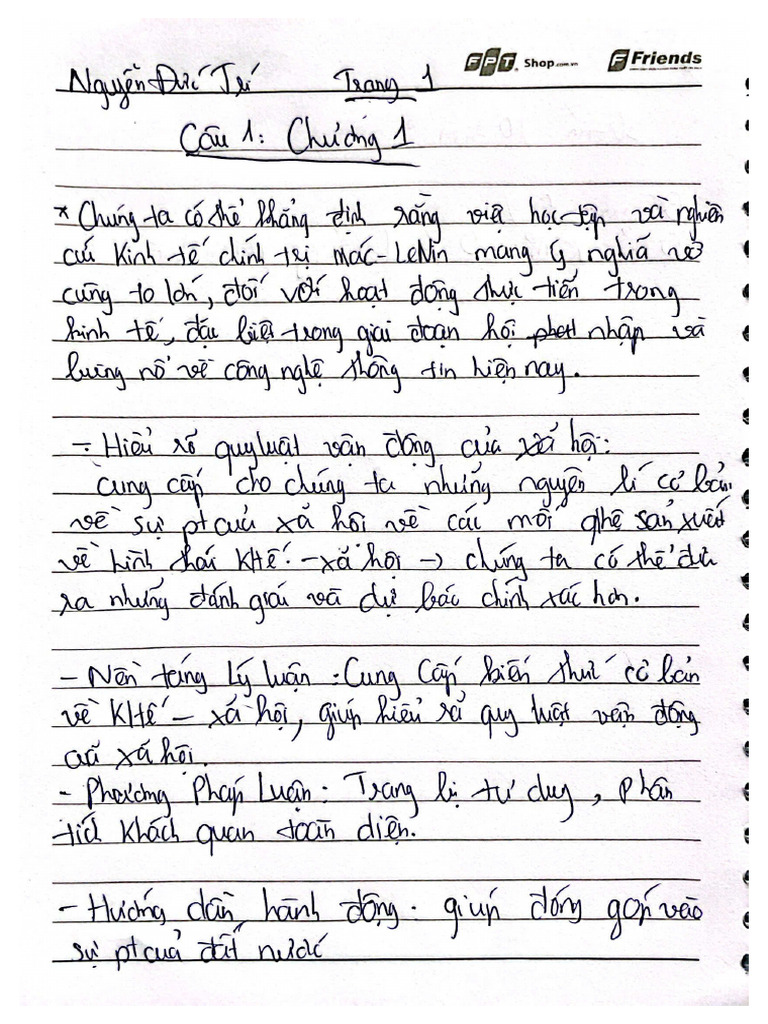 FPT Shop.com.vn F Friends
Nguyễn Đức Trí Trang 1
Câu 1: Chương 1
* Chúng ta có thể khẳng định rằng việc học tập và nghiên
cứu Kinh tế chính trị Mác-LêNin mang ý nghĩa vô
cùng to lớn, đối với hoạt động thực tiễn trong
kinh tế, đặc biệt trong giai đoạn hội nhập và
bùng nổ về công nghệ thông tin hiện nay.
- Hiểu rõ quy luật vận động của xã hội:
Cung cấp cho chúng ta những nguyên lí cơ bản
về sự pt của xã hội về các mối qhệ sản xuất
về hình thái KHtế - xã hội → chúng ta có thể đưa
ra những đánh giá và dự báo chính xác hơn.
- Nền tảng Lý luận : Cung Cấp kiến thức cơ bản
về KHtế - xã hội, giúp hiểu rõ quy luật vận động
của xã hội.
- Phương Pháp Luận : Trang bị tư duy, phân
tích khách quan toàn diện.
- Hướng dẫn hành động : giúp đóng góp vào
sự pt của đất nước